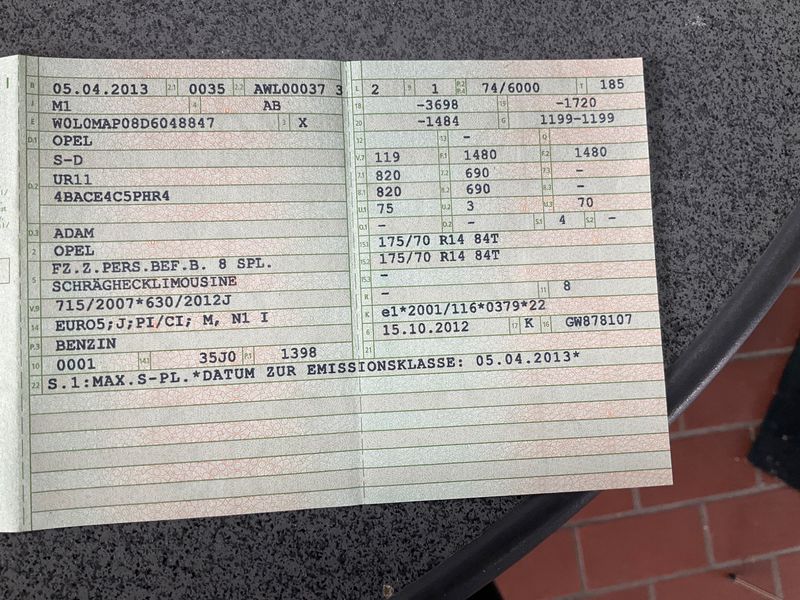 B 05.04.2013 2.1 0035 2.2 AWL00037 3
J M1 4 AB
E W0L0MAP08D6048847 3 X
D.1 OPEL
D.2 S-D
UR11
4BACE4C5PHR4
D.3 ADAM
2 OPEL
5 FZ.Z.PERS.BEF.B. 8 SPL.
SCHRÄGHECKLIMOUSINE
V.9 715/2007*630/2012J
14 EURO5;J;PI/CI; M, N1 I
P.3 BENZIN
10 0001 14.1 35J0 P.1 1398
22 S.1:MAX.S-PL.*DATUM ZUR EMISSIONSKLASSE: 05.04.2013*
L 2 9 1 P.2 P.4 74/6000 T 185
18 -3698 19 -1720
20 -1484 G 1199-1199
12 - 13 - Q
V.7 119 F.1 1480 F.2 1480
7.1 820 7.2 690 7.3 -
8.1 820 8.2 690 8.3 -
U.1 75 U.2 3 U.3 70
O.1 - O.2 - S.1 4 S.2 -
15.1 175/70 R14 84T
15.2 175/70 R14 84T
15.3 -
R - 11 8
K e1*2001/116*0379*22
6 15.10.2012 17 K 16 GW878107
21